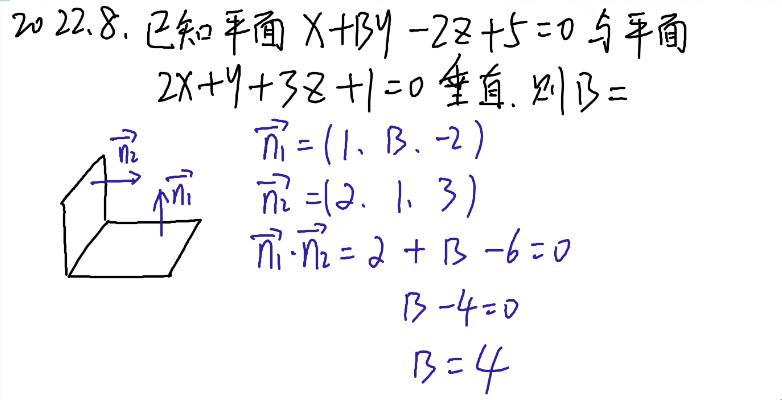 2022.8.已知平面 X+By-2z+5=0 与平面
2X+y+3z+1=0 垂直.则B=
n₁⃗=(1、B、-2)
n₂⃗
n₁⃗
n₂⃗=(2、1、3)
n₁⃗·n₂⃗=2+B-6=0
B-4=0
B=4